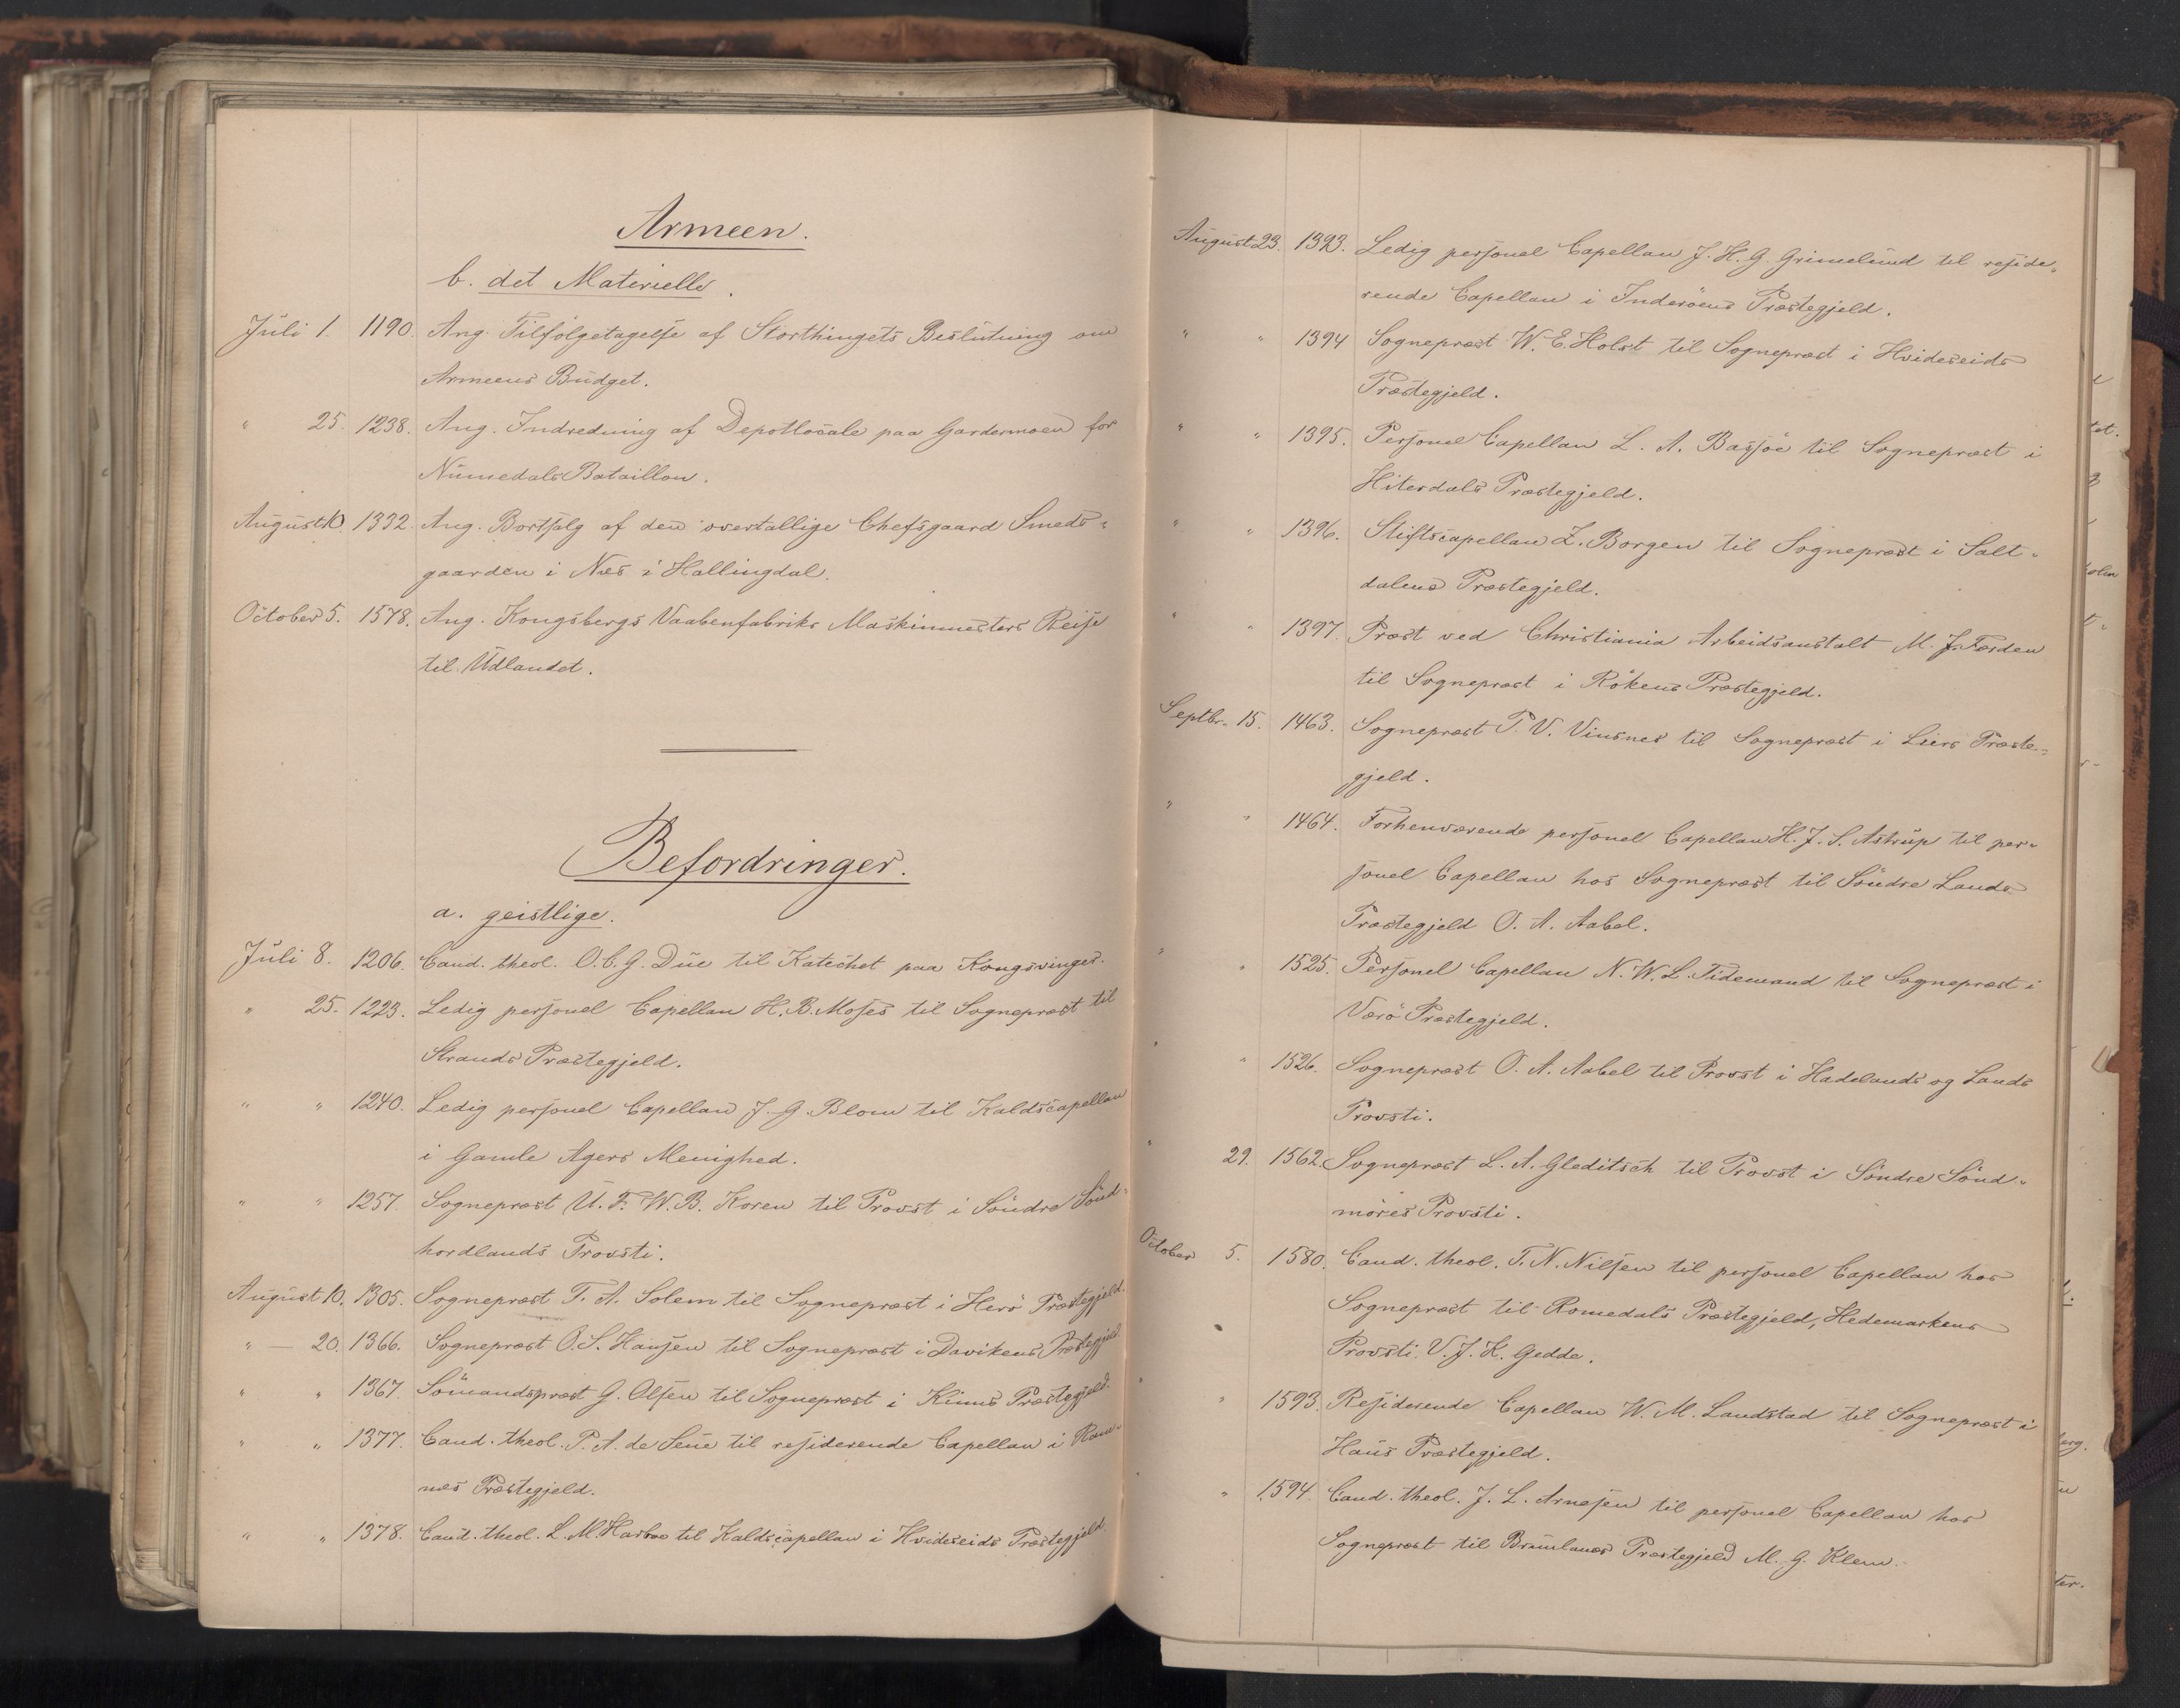 Armeen.
b. det Materielle.
Juli 1. 1190. Ang. Tilfölgetagelse af Storthingets Beslutning om
Armeens Budget.
" 25. 1238. Ang. Indredning af Depotlocale paa Gardermoen for
Numedals Bataillon.
August 10. 1332. Ang. Bortsalg af den overtallige Chefsgaard Smeds-
gaarden i Næs i Hallingdal.
October 5. 1578. Ang. Kongsbergs Vaabenfabriks Maskinmesters Reise
til Udlandet.
Befordringer.
a. geistlige.
Juli 8. 1206. Cand. theol. O. C. G. Due til Katechet paa Kongsvinger.
" 25. 1223. Ledig personel Capellan H. B. Moses til Sognepræst til
Strands Præstegjeld.
" " 1240. Ledig personel Capellan J. G. Blom til Kaldscapellan
i Gamle Agers Menighed.
" " 1257. Sognepræst U. F. W. B. Koren til Provst i Söndre Sönd-
hordlands Provsti.
August 10. 1305. Sognepræst T. A. Solem til Sognepræst i Herö Præstegjeld.
" — 20. 1366. Sognepræst O. S. Hansen til Sognepræst i Davikens Præstegjeld
" " 1367. Sömandspræst G. Olsen til Sognepræst i Kinns Præstegjeld.
" " 1377. Cand. theol. P. A. de Seue til residerende Capellan i Ram-
næs Præstegjeld.
" " 1378. Cand. theol. L. M. Harboe til Kaldscapellan i Hvideseids Præstegjeld.
August 23. 1393. Ledig personel Capellan J. H. G. Grimelund til reside-
rende Capellan i Inderöens Præstegjeld.
" " 1394 Sognepræst W. E. Holst til Sognepræst i Hvideseids
Præstegjeld.
" " 1395. Personel Capellan L. A. Bassöe til Sognepræst i
Hiterdals Præstegjeld.
" " 1396. Stiftscapellan Z. Borgen til Sognepræst i Salt-
dalens Præstegjeld.
" " 1397. Præst ved Christiania Arbeidsanstalt M. J. Færden
til Sognepræst i Rökens Præstegjeld.
Septbr. 15. 1463. Sognepræst P. V. Vinsnes til Sognepræst i Liers Præste-
gjeld.
" " 1464. Forhenværende personel Capellan H. J. S. Astrup til per-
sonel Capellan hos Sognepræst til Söndre Lands
Præstegjeld O. A. Aabel.
" " 1525. Personel Capellan N. W. L. Tidemand til Sognepræst i
Værö Præstegjeld.
" " 1526. Sognepræst O. A. Aabel til Provst i Hadelands og Lands
Provsti.
" 29. 1562. Sognepræst L. A. Gleditsch til Provst i Söndre Sönd-
möres Provsti.
October 5. 1580. Cand. theol. T. N. Nilsen til personel Capellan hos
Sognepræst til Romedals Præstegjeld, Hedemarkens
Provsti. V. J. K. Gedde.
" " 1593. Residerende Capellan W. M. Landstad til Sognepræst i
Haus Præstegjeld.
" " 1594. Cand. theol. J. L. Arnesen til personel Capellan hos
Sognepræst til Brunlanes Præstegjeld M. G. Klem.